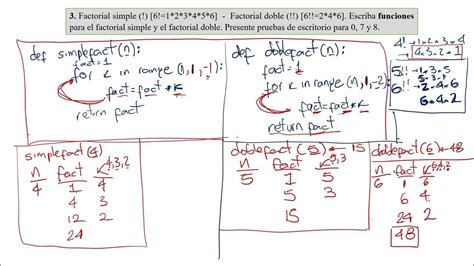 3. Factorial simple (!) [6!=1*2*3*4*5*6] - Factorial doble (!!) [6!!=2*4*6]. Escriba funciones
para el factorial simple y el factorial doble. Presente pruebas de escritorio para 0, 7 y 8.
def simplefact(n):
fact=1
for k in range(n,1,-1):
fact=fact*k
return fact
def doblefact(n):
fact=1
for k in range(n,1,-2):
fact=fact*k
return fact
4! 1*2*3*4
4*3*2*1
5!! 1*3*5
5*3*1
6!! 2*4*6
6*4*2
simplefact(4)
n fact k 4,3,2
4 1 4
4 3
12 2
24
doblefact(5) 15
n fact k 5,3
5 1 5
5 3
15
doblefact(6)=48
n fact k 6,4,2
6 1 6
6 4
24 2
48